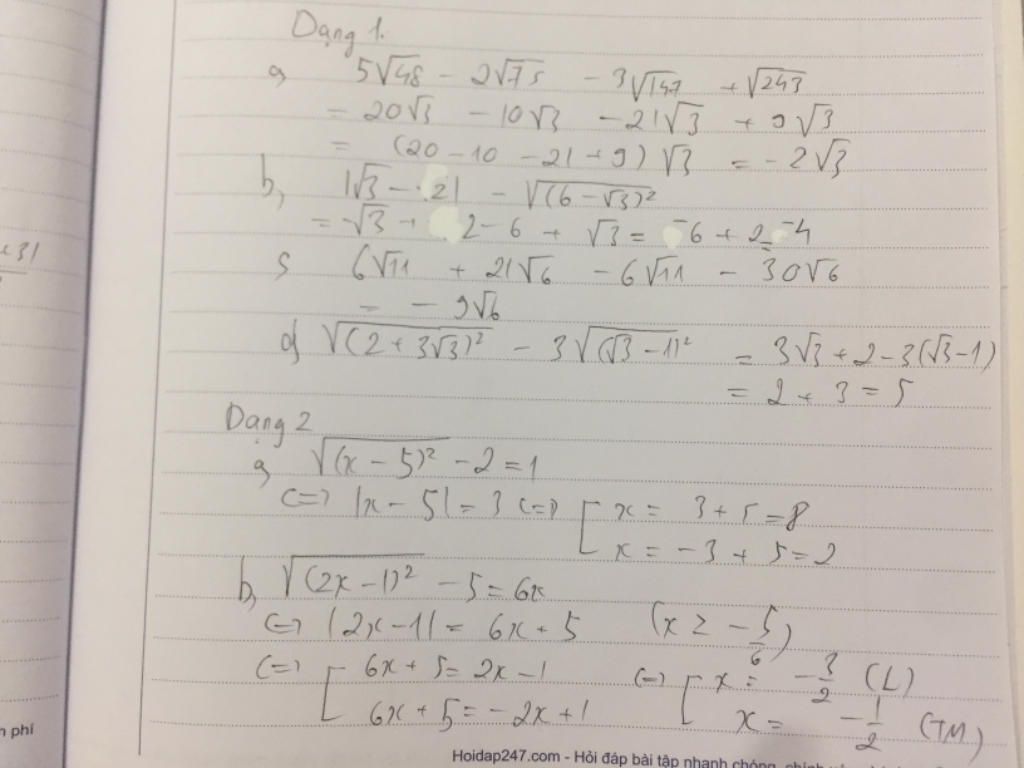 Dạng 1.
a, 5√48 - 2√75 - 3√147 + √243
= 20√3 - 10√3 - 21√3 + 9√3
= (20 - 10 - 21 + 9)√3 = -2√3
b, |√3 - 2| - √(6 - √3)²
= √3 + 2 - 6 + √3 = -6 + 2 = -4
c, 6√11 + 21√6 - 6√11 - 30√6
= - 9√6
d, √(2 + 3√3)² - 3√(√3 - 1)² = 3√3 + 2 - 3(√3 - 1)
= 2 + 3 = 5
Dạng 2
a, √(x - 5)² - 2 = 1
<=> |x - 5| = 3 <=> [ x = 3 + 5 = 8
x = -3 + 5 = 2
b, √(2x - 1)² - 5 = 6x
<=> |2x - 1| = 6x + 5 (x ≥ -5/6)
<=> [ 6x + 5 = 2x - 1 <=> [ x = -3/2 (L)
6x + 5 = -2x + 1 x = -1/2 (TM)
n phí
Hoidap247.com - Hỏi đáp bài tập nhanh chóng, chính